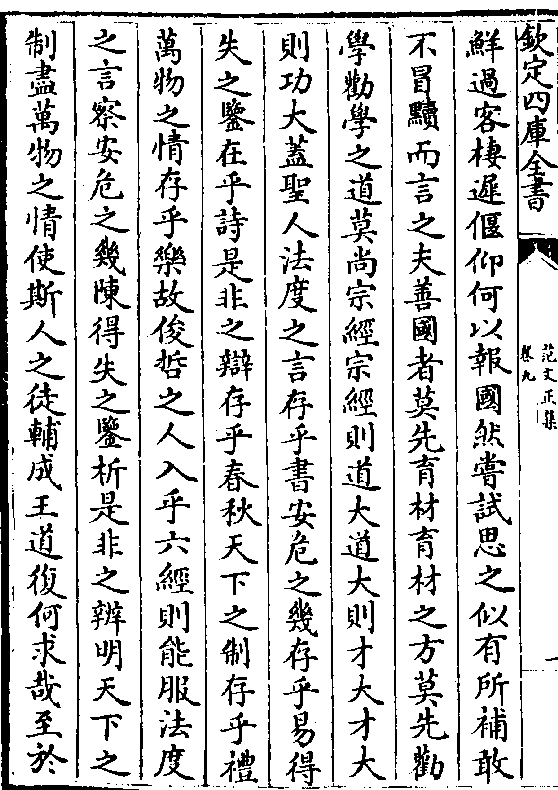 欽定四庫全書
范文正集
卷九
一
鮮過客棲遲偃仰何以報國然嘗試思之似有所補敢
不冒黷而言之夫善國者莫先育材育材之方莫先勸
學勸學之道莫尚宗經宗經則道大道大則才大才大
則功大蓋聖人法度之言存乎書安危之幾存乎易得
失之鑒在乎詩是非之辯存乎春秋天下之制存乎禮
萬物之情存乎樂故俊哲之人入乎六經則能服法度
之言察安危之幾陳得失之鑒析是非之辨明天下之
制盡萬物之情使斯人之徒輔成王道復何求哉至於